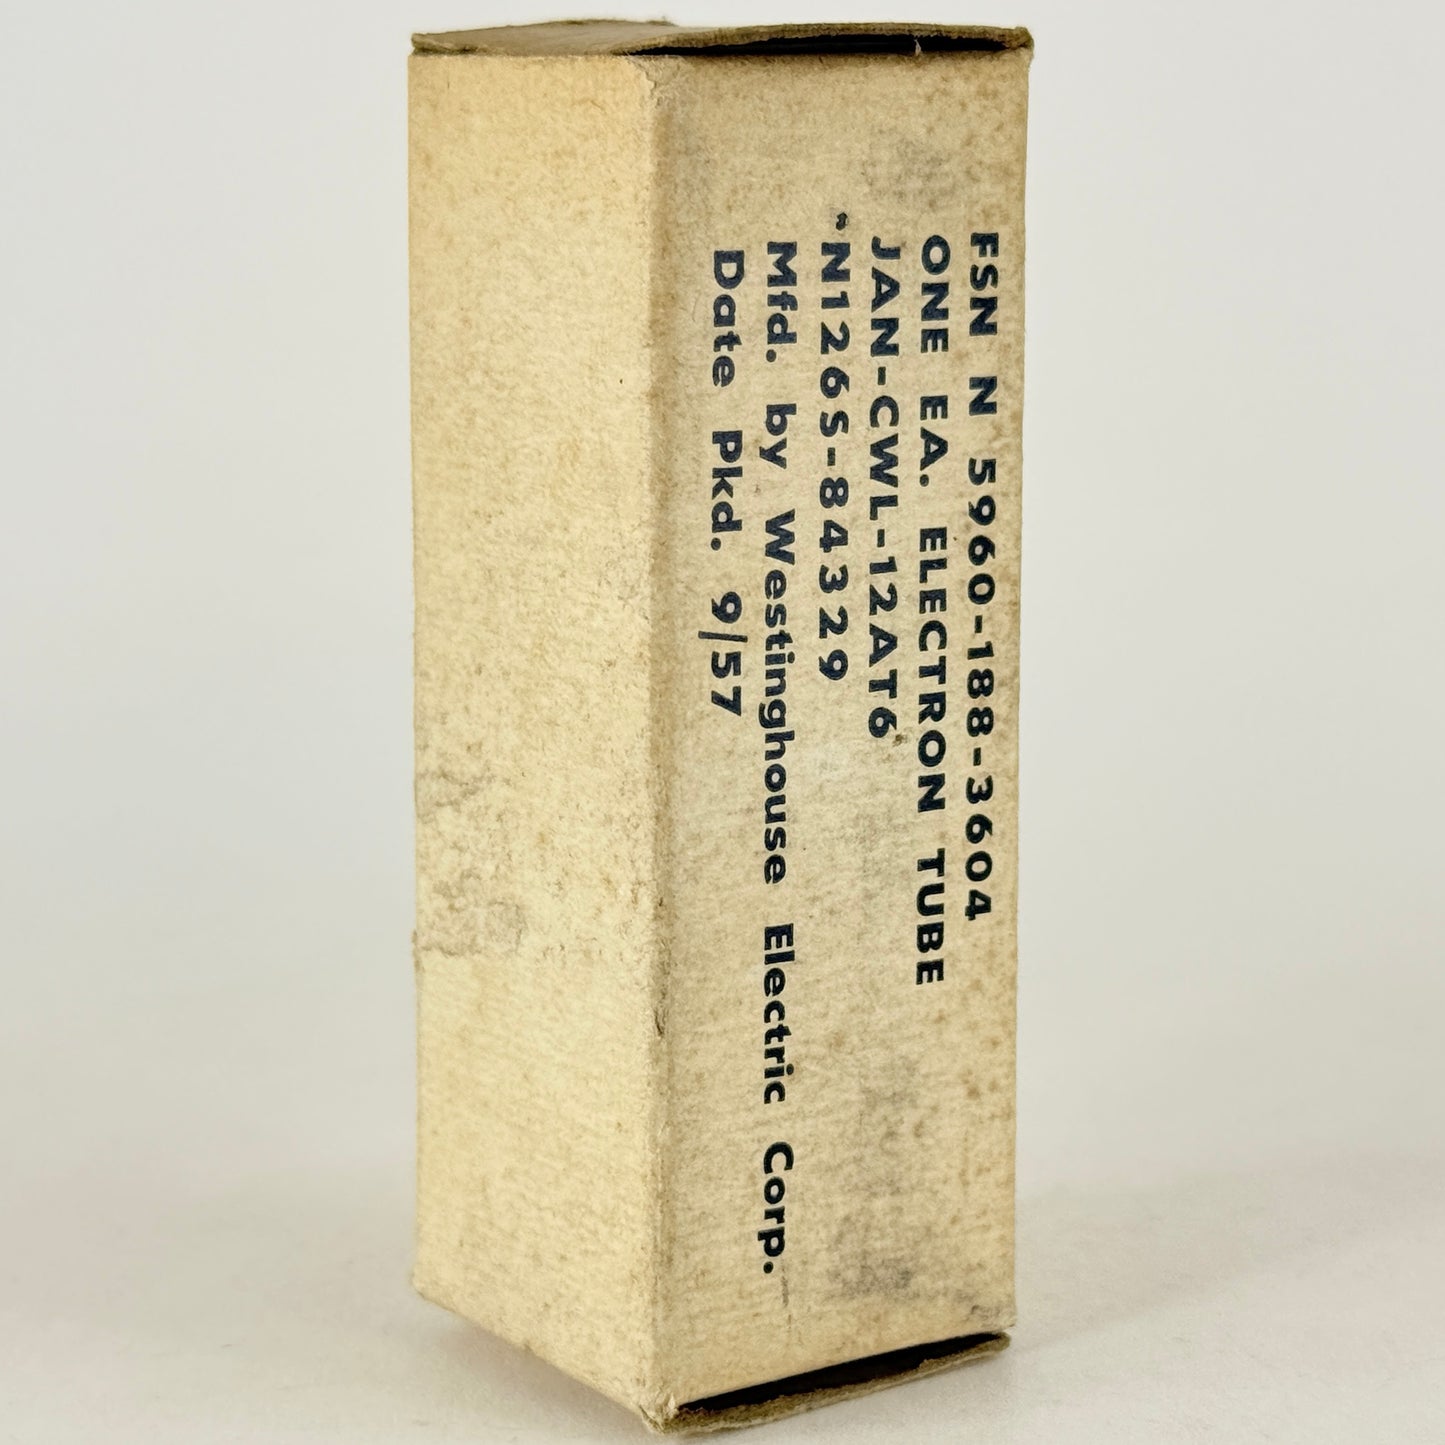 FSN N 5960-188-3604
ONE EA. ELECTRON TUBE
JAN-CWL-12AT6
"N126S-84329
Mfd. by Westinghouse Electric Corp.
Date Pkd. 9/57